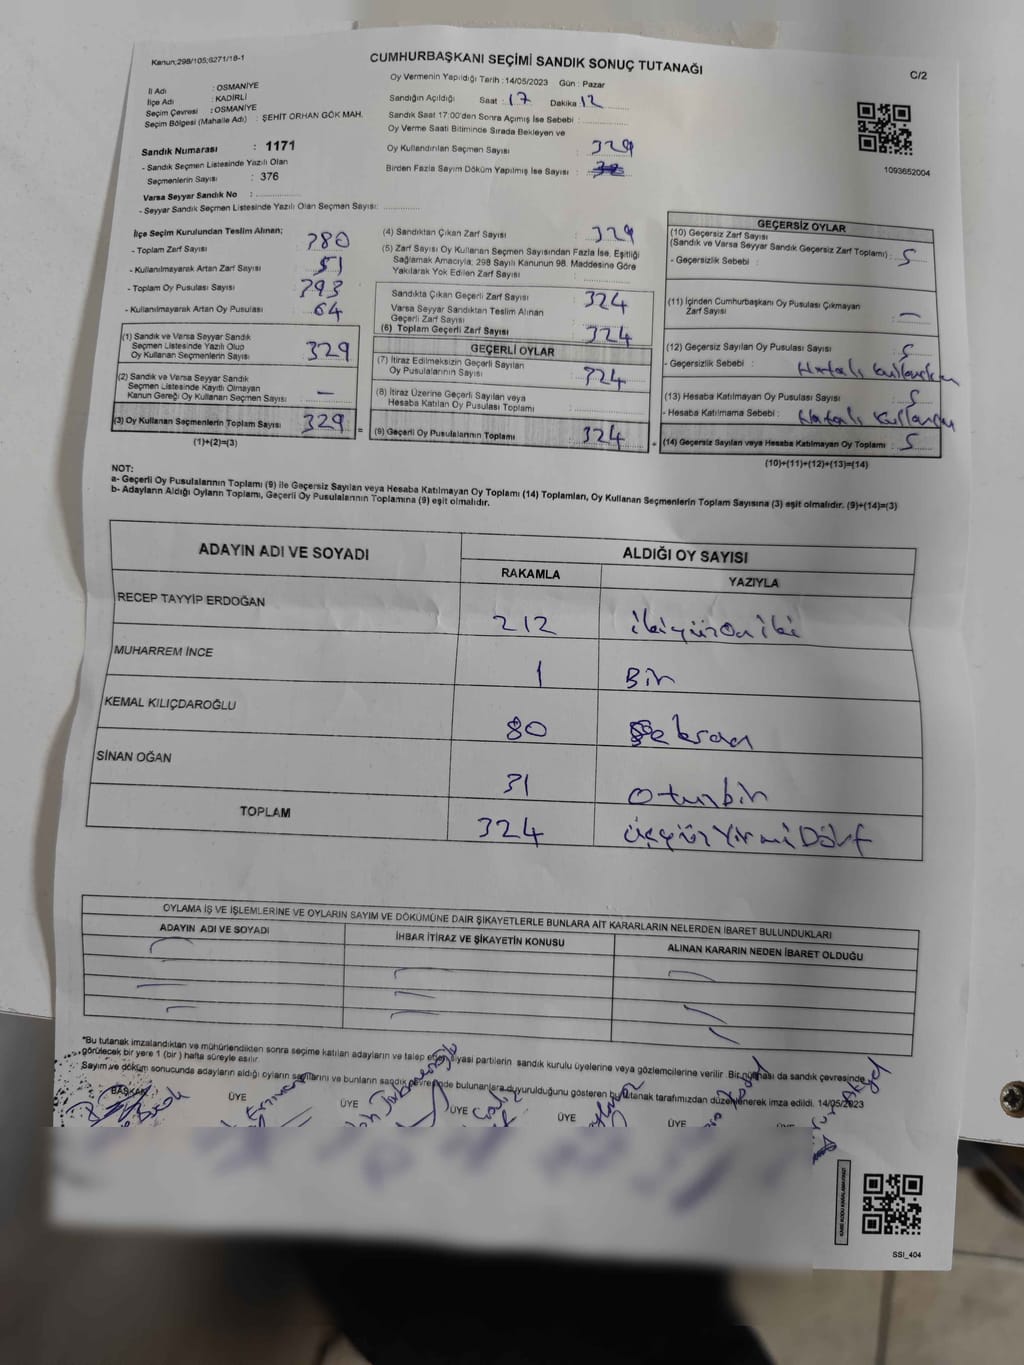 Kanun;298/105;6271/16-1
CUMHURBAŞKANI SEÇİMİ SANDIK SONUÇ TUTANAĞI
C/2
İl Adı : OSMANİYE
İlçe Adı : KADİRLİ
Seçim Çevresi : OSMANİYE
Seçim Bölgesi (Mahalle Adı) : ŞEHİT ORHAN GÖK MAH.
Sandık Numarası : 1171
- Sandık Seçmen Listesinde Yazılı Olan
Seçmenlerin Sayısı : 376
Varsa Seyyar Sandık No :
- Seyyar Sandık Seçmen Listesinde Yazılı Olan Seçmen Sayısı:
Oy Vermenin Yapıldığı Tarih :14/05/2023 Gün : Pazar
Sandığın Açıldığı Saat : 17 Dakika 12
Sandık Saat 17:00'den Sonra Açımış İse Sebebi :
Oy Verme Saati Bitiminde Sırada Bekleyen ve
Oy Kullandırılan Seçmen Sayısı : 329
Birden Fazla Sayım Döküm Yapılmış İse Sayısı :
1093652004
İlçe Seçim Kurulundan Teslim Alınan;
- Toplam Zarf Sayısı 380
- Kullanılmayarak Artan Zarf Sayısı 51
- Toplam Oy Pusulası Sayısı 393
- Kullanılmayarak Artan Oy Pusulası 64
(1) Sandık ve Varsa Seyyar Sandık
Seçmen Listesinde Yazılı Olup
Oy Kullanan Seçmenlerin Sayısı 329
(2) Sandık ve Varsa Seyyar Sandık
Seçmen Listesinde Kayıtlı Olmayan
Kanun Gereği Oy Kullanan Seçmen Sayısı : —
(3) Oy Kullanan Seçmenlerin Toplam Sayısı : 329
(1)+(2)=(3)
(4) Sandıktan Çıkan Zarf Sayısı : 329
(5) Zarf Sayısı Oy Kullanan Seçmen Sayısından Fazla İse, Eşitliği
Sağlamak Amacıyla; 298 Sayılı Kanunun 98. Maddesine Göre
Yakılarak Yok Edilen Zarf Sayısı
Sandıkta Çıkan Geçerli Zarf Sayısı : 324
Varsa Seyyar Sandıktan Teslim Alınan
Geçerli Zarf Sayısı
(6) Toplam Geçerli Zarf Sayısı : 324
GEÇERLİ OYLAR
(7) İtiraz Edilmeksizin Geçerli Sayılan
Oy Pusulalarının Sayısı : 324
(8) İtiraz Üzerine Geçerli Sayılan veya
Hesaba Katılan Oy Pusulası Toplamı :
(9) Geçerli Oy Pusulalarının Toplamı : 324
GEÇERSİZ OYLAR
(10) Geçersiz Zarf Sayısı
(Sandık ve Varsa Seyyar Sandık Geçersiz Zarf Toplamı) : 5
- Geçersizlik Sebebi :
(11) İçinden Cumhurbaşkanı Oy Pusulası Çıkmayan
Zarf Sayısı —
(12) Geçersiz Sayılan Oy Pusulası Sayısı : 5
- Geçersizlik Sebebi : Hatalı
(13) Hesaba Katılmayan Oy Pusulası Sayısı : 5
- Hesaba Katılmama Sebebi : Hatalı
(14) Geçersiz Sayılan veya Hesaba Katılmayan Oy Toplamı : 5
(10)+(11)+(12)+(13)=(14)
NOT:
a- Geçerli Oy Pusulalarının Toplamı (9) ile Geçersiz Sayılan veya Hesaba Katılmayan Oy Toplamı (14) Toplamları, Oy Kullanan Seçmenlerin Toplam Sayısına (3) eşit olmalıdır. (9)+(14)=(3)
b- Adayların Aldığı Oyların Toplamı, Geçerli Oy Pusulalarının Toplamına (9) eşit olmalıdır.
ADAYIN ADI VE SOYADI
ALDIĞI OY SAYISI
RAKAMLA YAZIYLA
RECEP TAYYİP ERDOĞAN 212 ikiyüzoniki
MUHARREM İNCE 1 Bir
KEMAL KILIÇDAROĞLU 80 Seksan
SİNAN OĞAN 31 oturbir
TOPLAM 324 üçyüzYirmiDört
OYLAMA İŞ VE İŞLEMLERİNE VE OYLARIN SAYIM VE DÖKÜMÜNE DAİR ŞİKAYETLERLE BUNLARA AİT KARARLARIN NELERDEN İBARET BULUNDUKLARI
ADAYIN ADI VE SOYADI
İHBAR İTİRAZ VE ŞİKAYETİN KONUSU
ALINAN KARARIN NEDEN İBARET OLDUĞU
*Bu tutanak imzalandıktan ve mühürlendikten sonra seçime katılan adayların ve talep eden siyasi partilerin sandık kurulu üyelerine veya gözlemcilerine verilir. Bir nüshası da sandık çevresinde
görülecek bir yere 1 (bir) hafta süreyle asılır.
Sayım ve döküm sonucunda adayların aldığı oyların sayılarını ve bunların sandık çevresinde bulunanlara duyurulduğunu gösteren bu tutanak tarafımızdan düzenlenerek imza edildi. 14/05/2023
BAŞKAN ÜYE ÜYE ÜYE ÜYE ÜYE
SSI_404